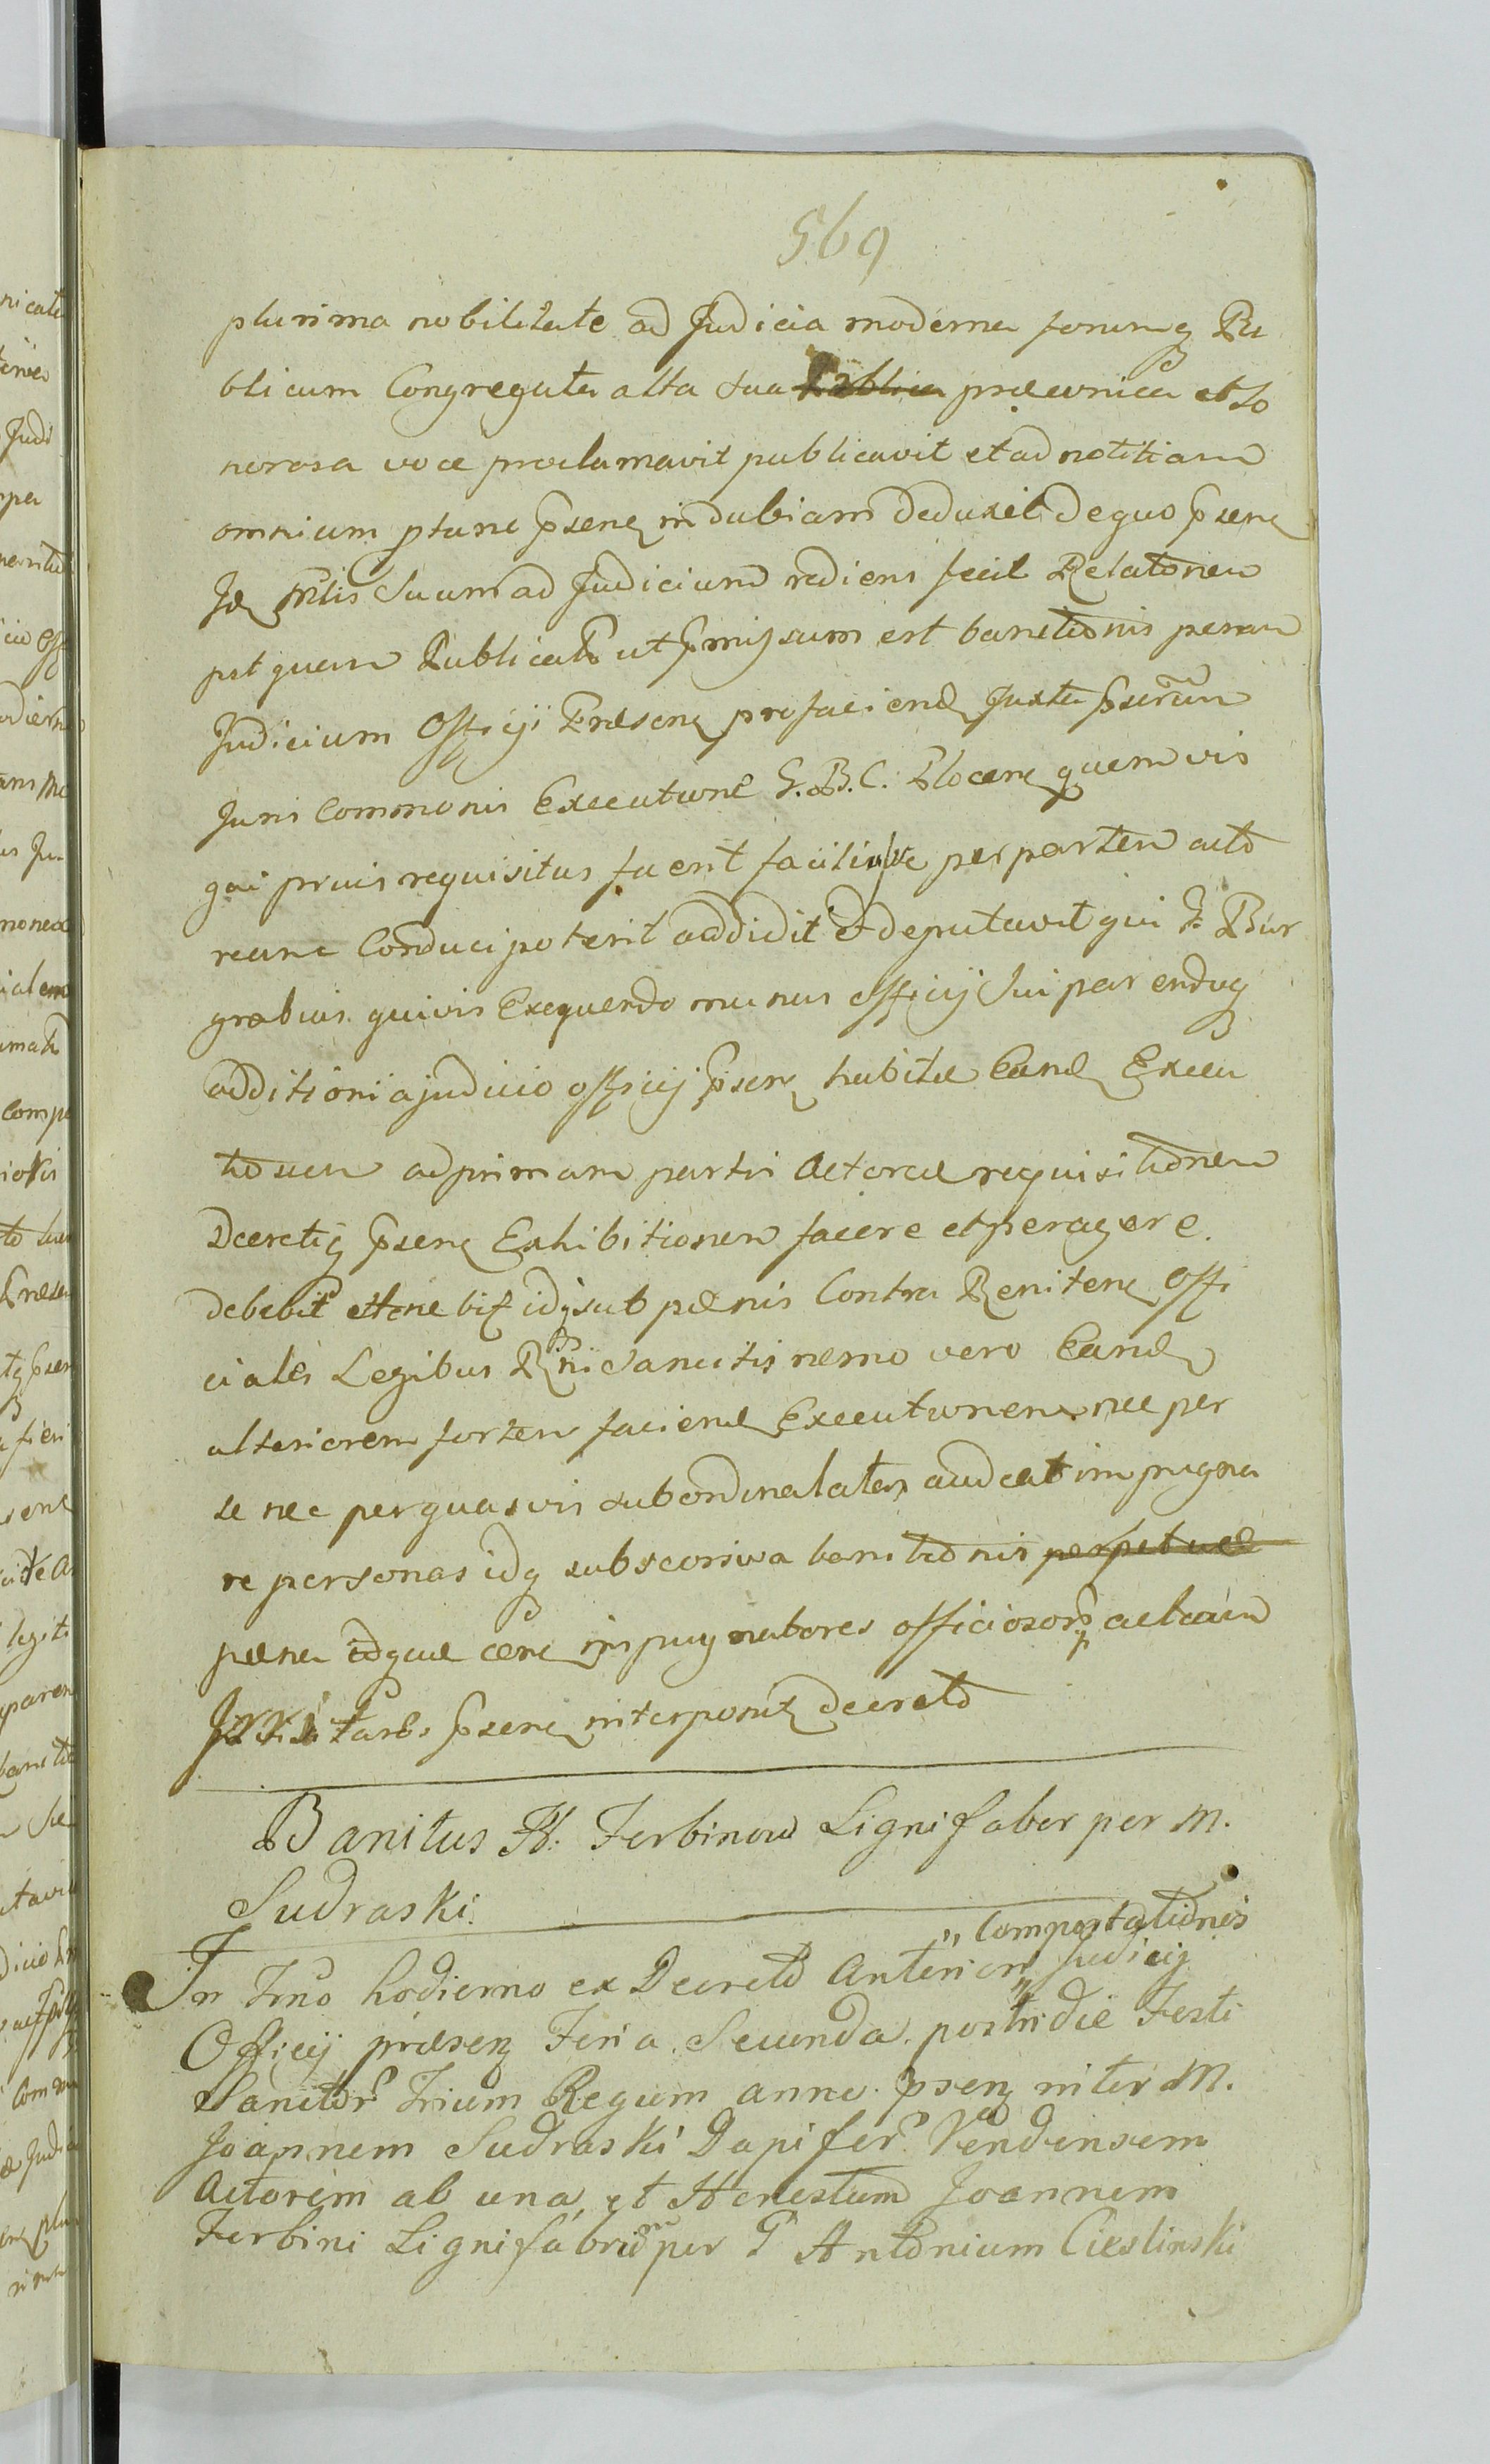 569
plurima nobilitate ad Judicia moderna forumq Pu
blicum Congregata alta sua praeconica et so
norosa voce proclamavit publicavit et ad notitiam
omnium ptunc psenq indubiam deduxit de quo psenq
Idq Mlis suum ad Judicium rediens fecit Relatonem
pst quam Publicato ut pmissum est banitionis penam
Judicium Officij Praesenq pro faciendq Juxta pscriptum
Juris Communis Executione G.B.C. Plocenq quemvis
qui prius requisitus fuerit facilius per partem acto
ream Conduci poterit addidit et deputavit qui G. Bur
grabius quivis Exequendo munus officij sui parendoq
additioni a judicio officij psenq habitae Eandq Execu
tionem ad primam partis Actoreae requisitionem
Decretiq psenq Exhibitionem facere et peragere
debebit et tenebitq idq sub paenis Contra Renitenq Offi
ciales Legibus Rgni Sancitis nemo vero Eandq
ulteriorem fortem faciendq Executionem nec per
se nec per quasvis subordinatas audeat impugna
re personas idq sub banitionis perpetuae
paena idque cenq impugnatores officiosorq
psenq interpositq decreto
Banitus H. Ferbinow Lignifaber per M.
Sudraski.
" Comportationis
In Trno hodierno ex Decreto Anteriori " Judicij
Officij praesenq Feria Secunda postridie Festi
Sanctor Trium Regum anno psenq inter M.
Joannem Sudraski Dapifer Vendensem
Actorem ab una et Honestum Joannem
Ferbini Lignifabrum per G Antonium Cieslinski